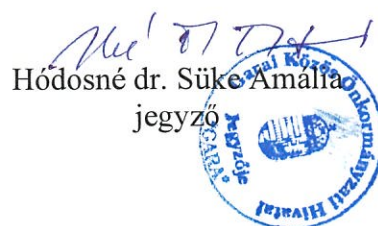 Hódosné dr. Süke Amália
jegyző
Garai Közös Önkormányzati Hivatal
Jegyzője
GARA